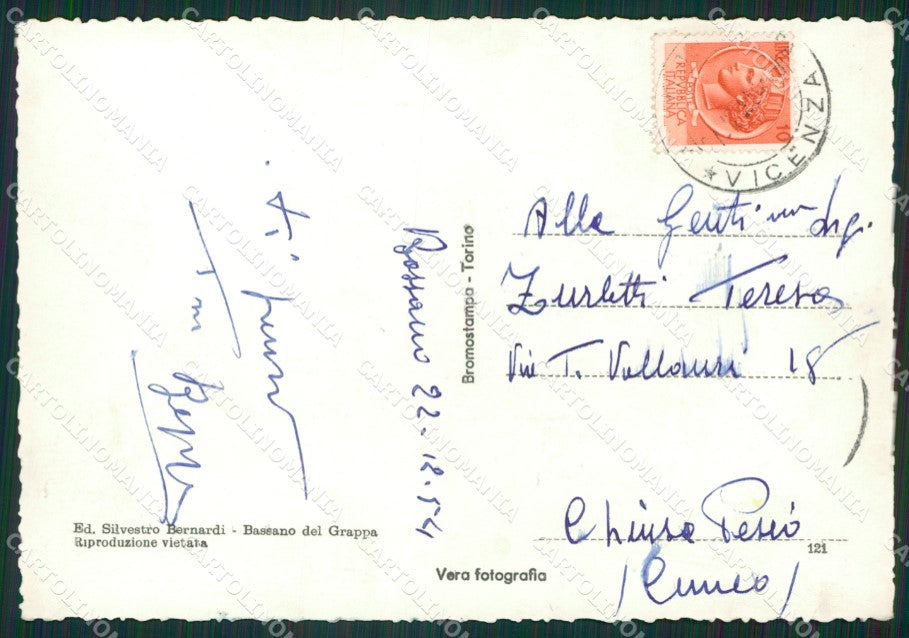 REPVBBLICA
ITALIANA
10
VICENZA
Alla Gent.ma Sig.
Zurletti Teresa
Via T. Vallauri 18
Chiusa Pesio
(Cuneo)
121
Bassano 22-12-54
Ti penso
Tuo Beppe
Bromostampa - Torino
Ed. Silvestro Bernardi - Bassano del Grappa
Riproduzione vietata
Vera fotografia
CARTOLINOMANIA